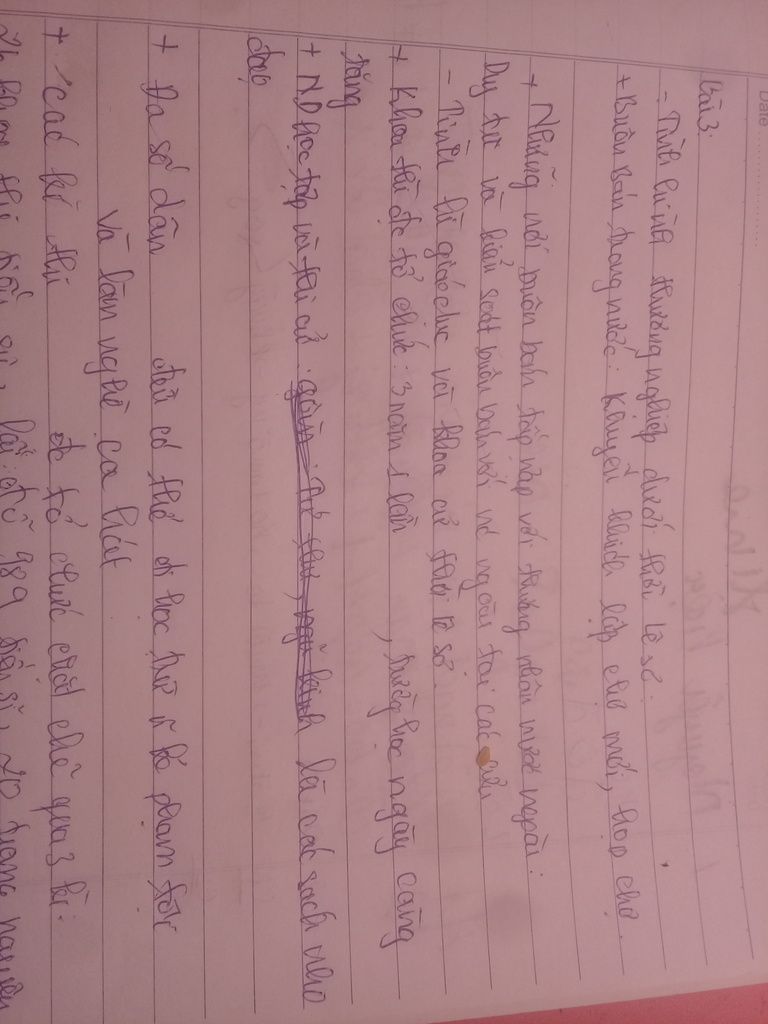 Date
Bài 3:
- Tình hình thương nghiệp dưới thời Lê sơ:
+ Buôn bán trong nước: Khuyến khích lập chợ mới, họp chợ.
+ Những nơi buôn bán tấp nập với thương nhân nước ngoài:
Duy trì và kiểm soát buôn bán với nc ngoài tại các cửa
- Tình hì giáo dục và khoa cử thời lê sơ.
+ Khoa thi đc tổ chức: 3 năm 1 lần , trường học ngày càng
tăng
+ ND học tập và thi cử: là các sách nho
đạo
+ Đa số dân đều có thể đi học trừ kẻ phạm tội
và làm nghề ca hát
+ các kì thi đc tổ chức chặt chẽ qua 3 kì:
26 khoa thi tiến sĩ, lấy đỗ 989 tiến sĩ, 20 trạng nguyên